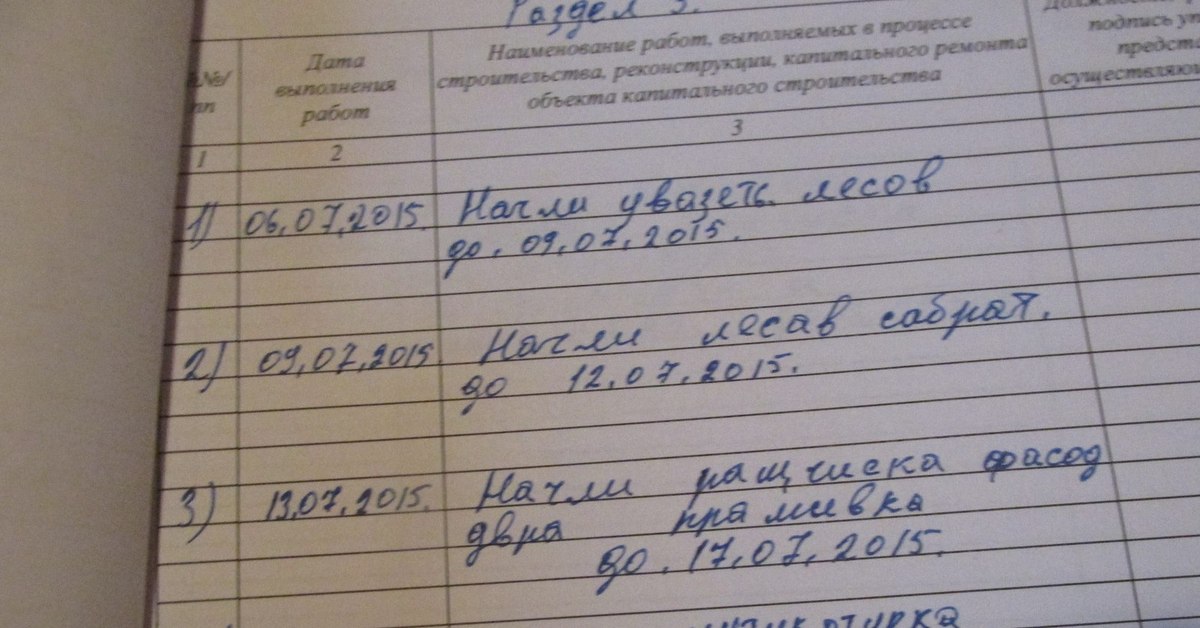 Раздел 3.
№/ пп
Дата выполнения работ
Наименование работ, выполняемых в процессе
строительства, реконструкции, капитального ремонта
объекта капитального строительства
подпись
предст
осуществляющ
1 2 3
1) 06.07.2015. Начли увазеть лесов
до. 09.07.2015.
2) 09.07.2015 Начли лесав сабрат.
до 12.07.2015.
3) 13.07.2015. Начли ращчиска фасод
двра прамивка
до. 17.07.2015.